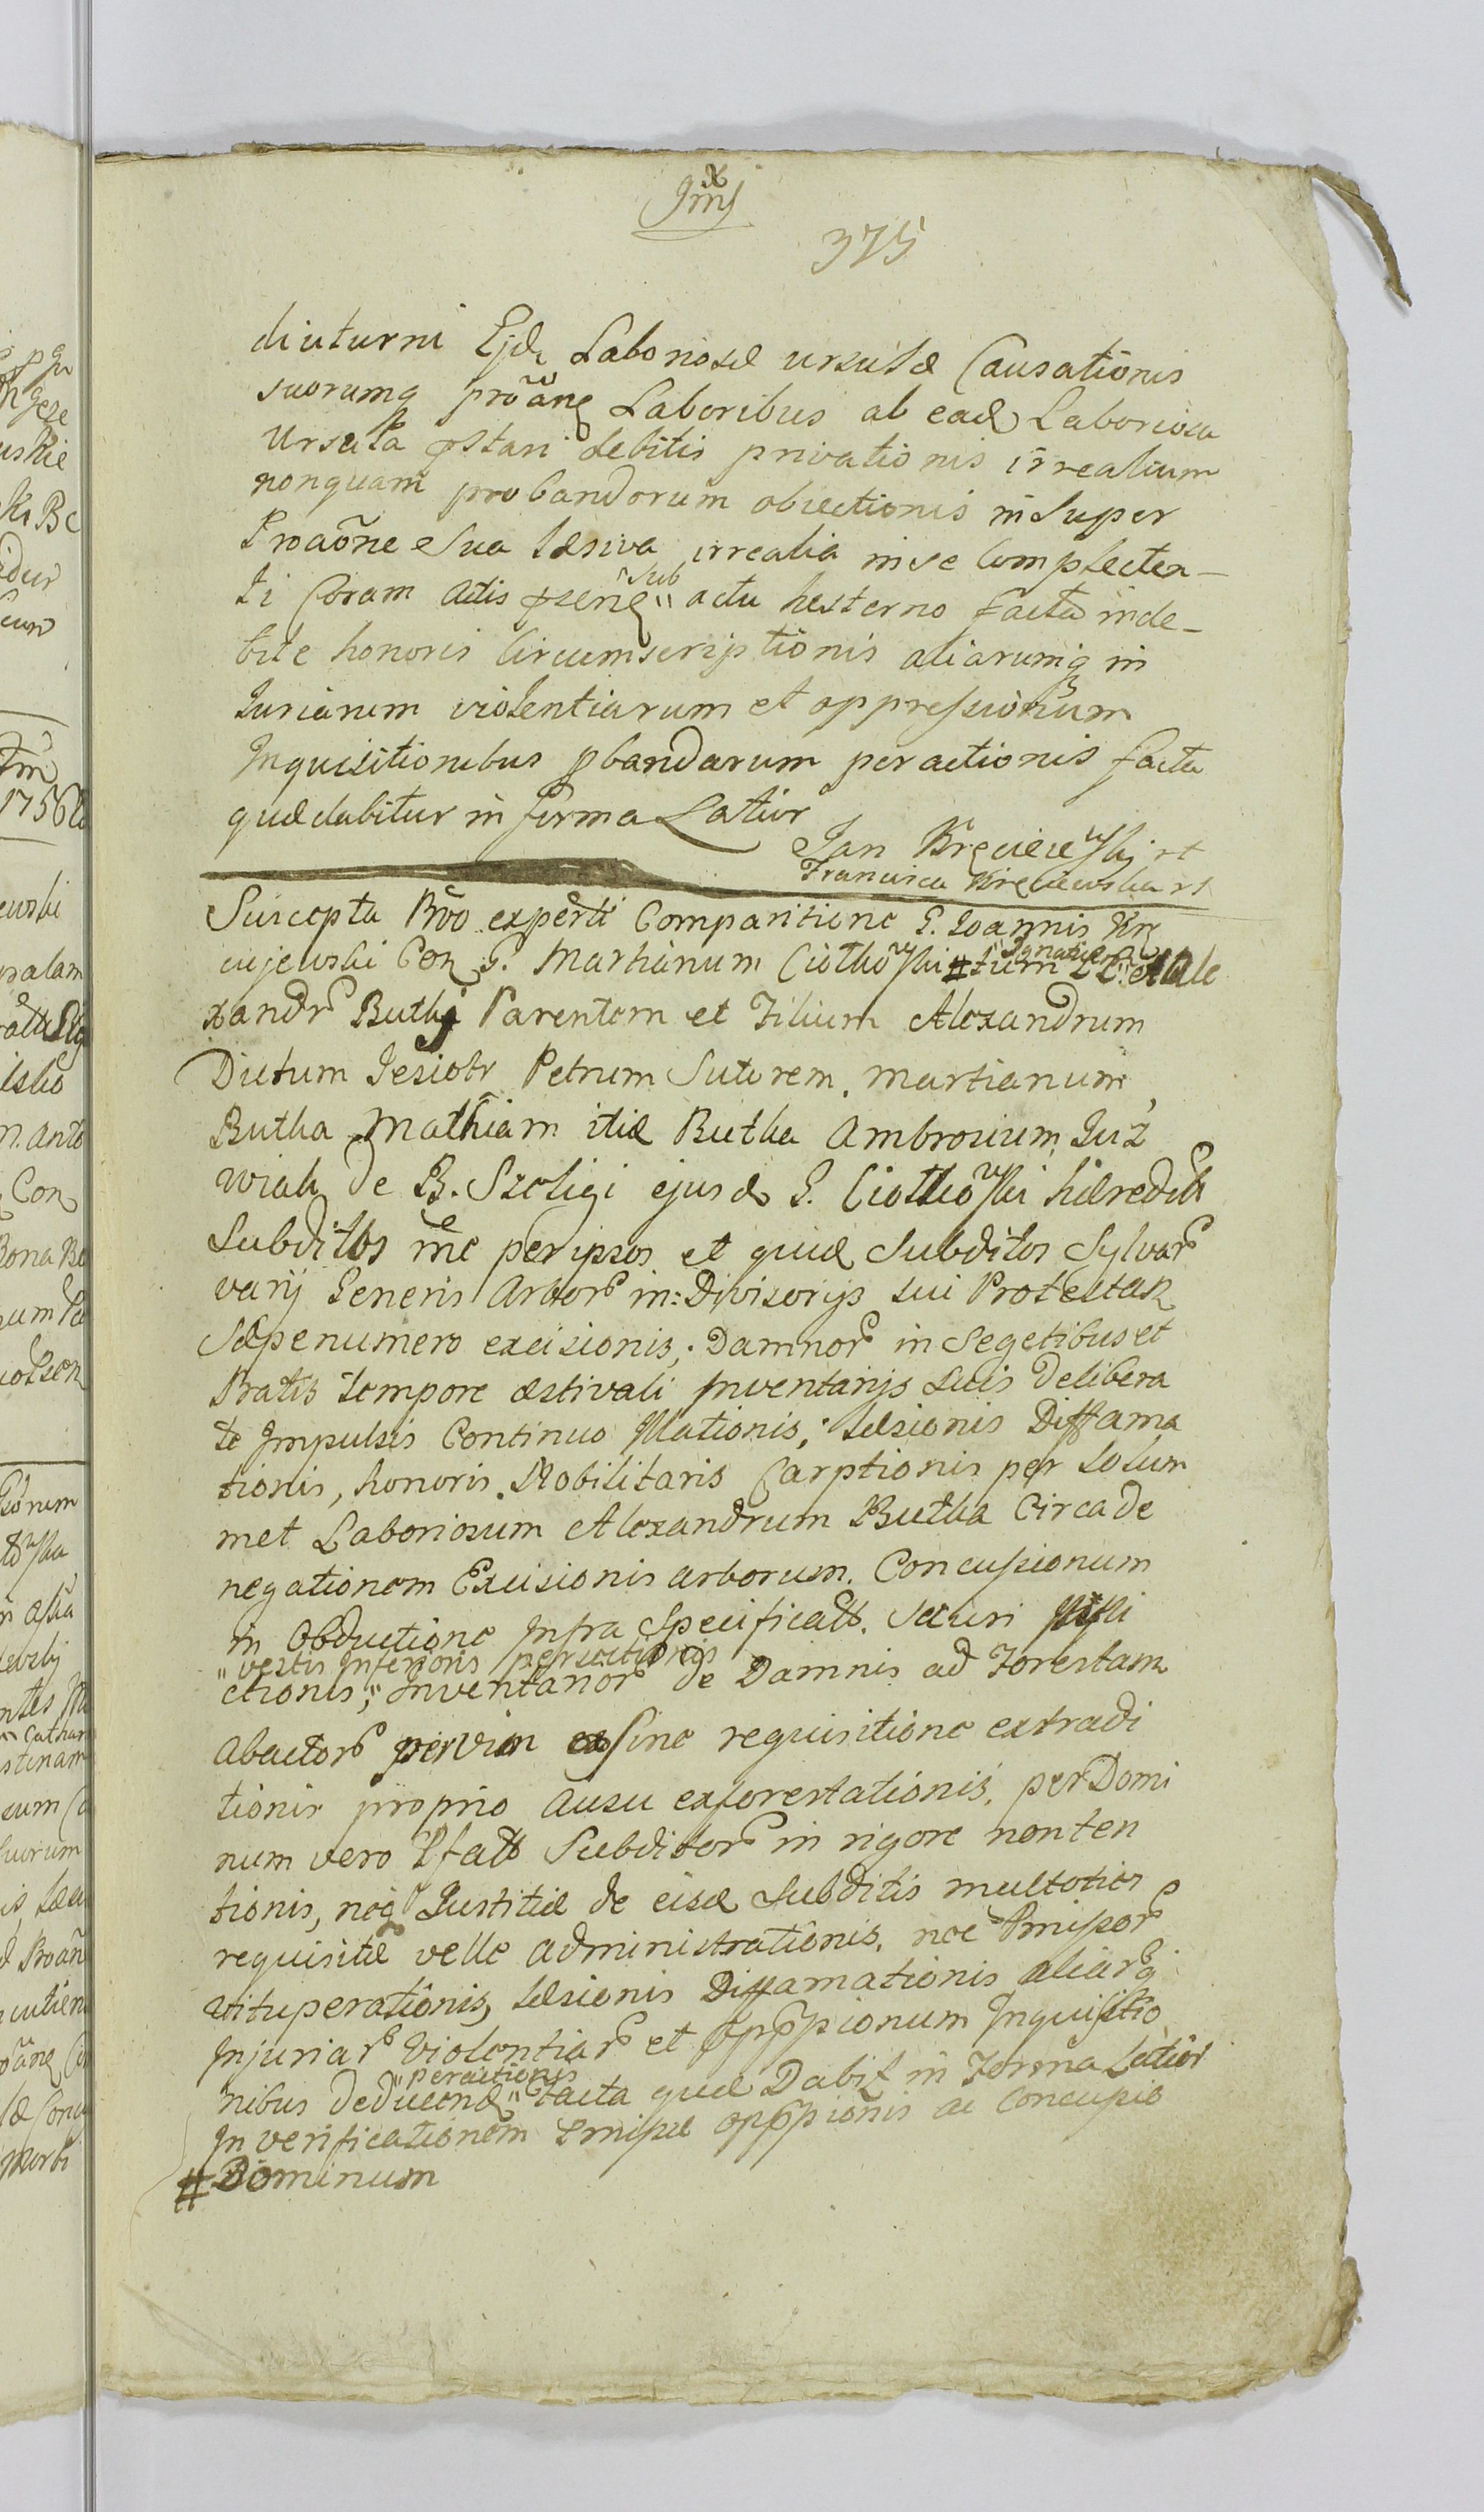 375
diuturni Ejd Laboriosæ ursulæ Causationis
suorumq proãnq Laboribus ab eadq Laboriosa
Ursula pstari debitis privationis irrealium
nonquam probandorum obiectionis in super
Proaõne sua læsiva irrealia in se Complecten-
ti Coram actis psenq "sub" actu hesterno facta inde-
bite honoris Circumscriptionis aliarumq in
Juriarum violentiarum et oppressionum
Inquisitionibus pbandarum peractionis facta
quæ dabitur in forma Latior
Jan Kręciewski
Francisca Kręciewska
Suscepta Prõo experti Comparitione G. Joannis Krę
ciejewski Con G. Martianum Ciotkowski # tum "Ignatium" LL. et Ale
xandr Butka Parentem et Filium Alexandrum
Dictum Jesiotr Petrum Sutorem, Martianum
Butka Mathiam itid Butka Ambrosium Juz
wiak de B. Szeligi ejusd G. Ciotkowski hæredit
Subditos rñe per ipsos et quid Subditos Sylvar
varij Generis Arbor in: Divisorijs sui Protestan
Sæpenumero excisionis, Damnor in Segetibus et
Pratis tempore æstivali Inventarijs suis delibera
te Impulsis Continuo Illationis, læsionis Diffama
tionis, honoris Nobilitaris Carptionis per solum
met Laboriosum Alexandrum Butka Circa de
negationem Excisionis arborum, Concussionum
in Obductione Infra Specificatt. Securi
"vestis Inferioris persectionis
ctionis," Inventarior de Damnis ad Forestam
abactor per vim sine requisitione extradi
tionis proprio ausu exforestationis, per Domi
num vero Pfatt Subditor in rigore non ten
tionis, neq Justitiæ de eisd Subditis multoties
requisitæ velle administrationis, nec Pmissor
vituperationis, læsionis Diffamationis aliarq
Injuriar violentiar et oppssionum Inquisitio
nibus deducend "peractionis" facta quæ Dabit in Forma Latior
In verificationem Pmissæ oppssionis ac Concussio
# Dominum